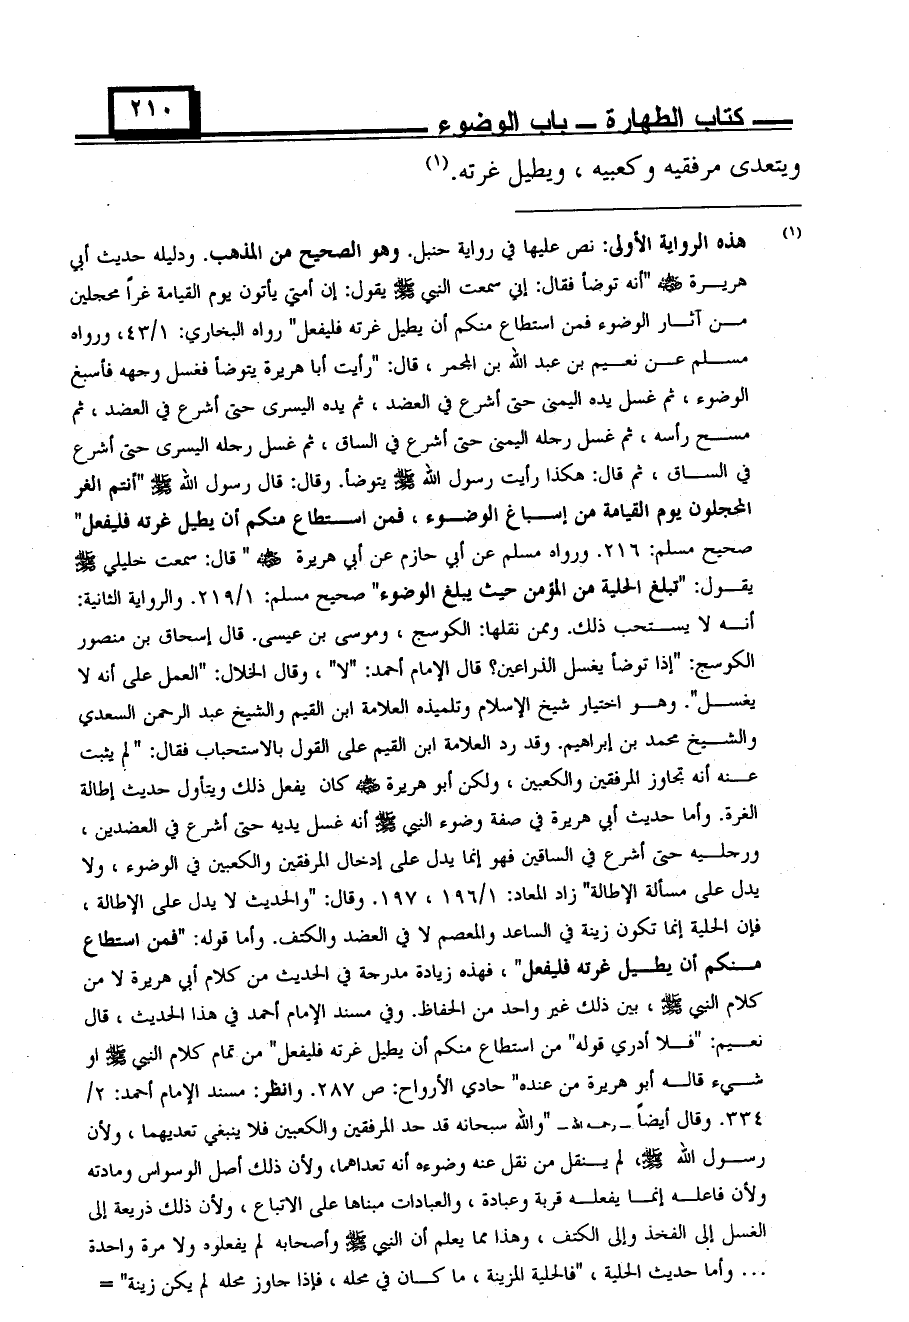 ٢١٠
كتاب الطهارة ــ باب الوضوء
ويتعدى مرفقيه وكعبيه ، ويطيل غرته.(١)
(١) هذه الرواية الأولى: نص عليها في رواية حنبل. وهو الصحيح من المذهب. ودليله حديث أبي
هريرة ﷺ "أنه توضأ فقال: إني سمعت النبي ﷺ يقول: إن أمتي يأتون يوم القيامة غراً محجلين
من آثار الوضوء فمن استطاع منكم أن يطيل غرته فليفعل" رواه البخاري: ٤٣/١، ورواه
مسلم عن نعيم بن عبد الله بن المجمر ، قال: "رأيت أبا هريرة يتوضأ فغسل وجهه فأسبغ
الوضوء ، ثم غسل يده اليمنى حتى أشرع في العضد ، ثم يده اليسرى حتى أشرع في العضد ، ثم
مسح رأسه ، ثم غسل رجله اليمنى حتى أشرع في الساق ، ثم غسل رجله اليسرى حتى أشرع
في الساق ، ثم قال: هكذا رأيت رسول الله ﷺ يتوضأ. وقال: قال رسول الله ﷺ "أنتم الغر
المحجلون يوم القيامة من إسباغ الوضوء ، فمن استطاع منكم أن يطيل غرته فليفعل"
صحيح مسلم: ٢١٦. ورواه مسلم عن أبي حازم عن أبي هريرة ﷺ " قال: سمعت خليلي ﷺ
يقول: "تبلغ الحلية من المؤمن حيث يبلغ الوضوء" صحيح مسلم: ٢١٩/١. والرواية الثانية:
أنه لا يستحب ذلك. وممن نقلها: الكوسج ، وموسى بن عيسى. قال إسحاق بن منصور
الكوسج: "إذا توضأ يغسل الذراعين؟ قال الإمام أحمد: "لا" ، وقال الخلال: "العمل على أنه لا
يغسل". وهو اختيار شيخ الإسلام وتلميذه العلامة ابن القيم والشيخ عبد الرحمن السعدي
والشيخ محمد بن إبراهيم. وقد رد العلامة ابن القيم على القول بالاستحباب فقال: "لم يثبت
عنه أنه تجاوز المرفقين والكعبين ، ولكن أبو هريرة ﷺ كان يفعل ذلك ويتأول حديث إطالة
الغرة. وأما حديث أبي هريرة في صفة وضوء النبي ﷺ أنه غسل يديه حتى أشرع في العضدين ،
ورجليه حتى أشرع في الساقين فهو إنما يدل على إدخال المرفقين والكعبين في الوضوء ، ولا
يدل على مسألة الإطالة" زاد المعاد: ١٩٦/١ ، ١٩٧. وقال: "والحديث لا يدل على الإطالة ،
فإن الحلية إنما تكون زينة في الساعد والمعصم لا في العضد والكتف. وأما قوله: "فمن استطاع
منكم أن يطيل غرته فليفعل" ، فهذه زيادة مدرجة في الحديث من كلام أبي هريرة لا من
كلام النبي ﷺ ، بين ذلك غير واحد من الحفاظ. وفي مسند الإمام أحمد في هذا الحديث ، قال
نعيم: "فلا أدري قوله" من استطاع منكم أن يطيل غرته فليفعل" من تمام كلام النبي ﷺ او
شيء قاله أبو هريرة من عنده" حادي الأرواح: ص ٢٨٧. وانظر: مسند الإمام أحمد: ٢/
٣٣٤. وقال أيضاً ــ رحمه الله ــ "والله سبحانه قد حد المرفقين والكعبين فلا ينبغي تعديهما ، ولأن
رسول الله ﷺ، لم ينقل من نقل عنه وضوءه أنه تعداهما، ولأن ذلك أصل الوسواس ومادته
ولأن فاعله إنما يفعله قربة وعبادة ، والعبادات مبناها على الاتباع ، ولأن ذلك ذريعة إلى
الغسل إلى الفخذ وإلى الكتف ، وهذا مما يعلم أن النبي ﷺ وأصحابه لم يفعلوه ولا مرة واحدة
... وأما حديث الحلية ، "فالحلية المزينة ، ما كان في محله ، فإذا جاوز محله لم يكن زينة" =